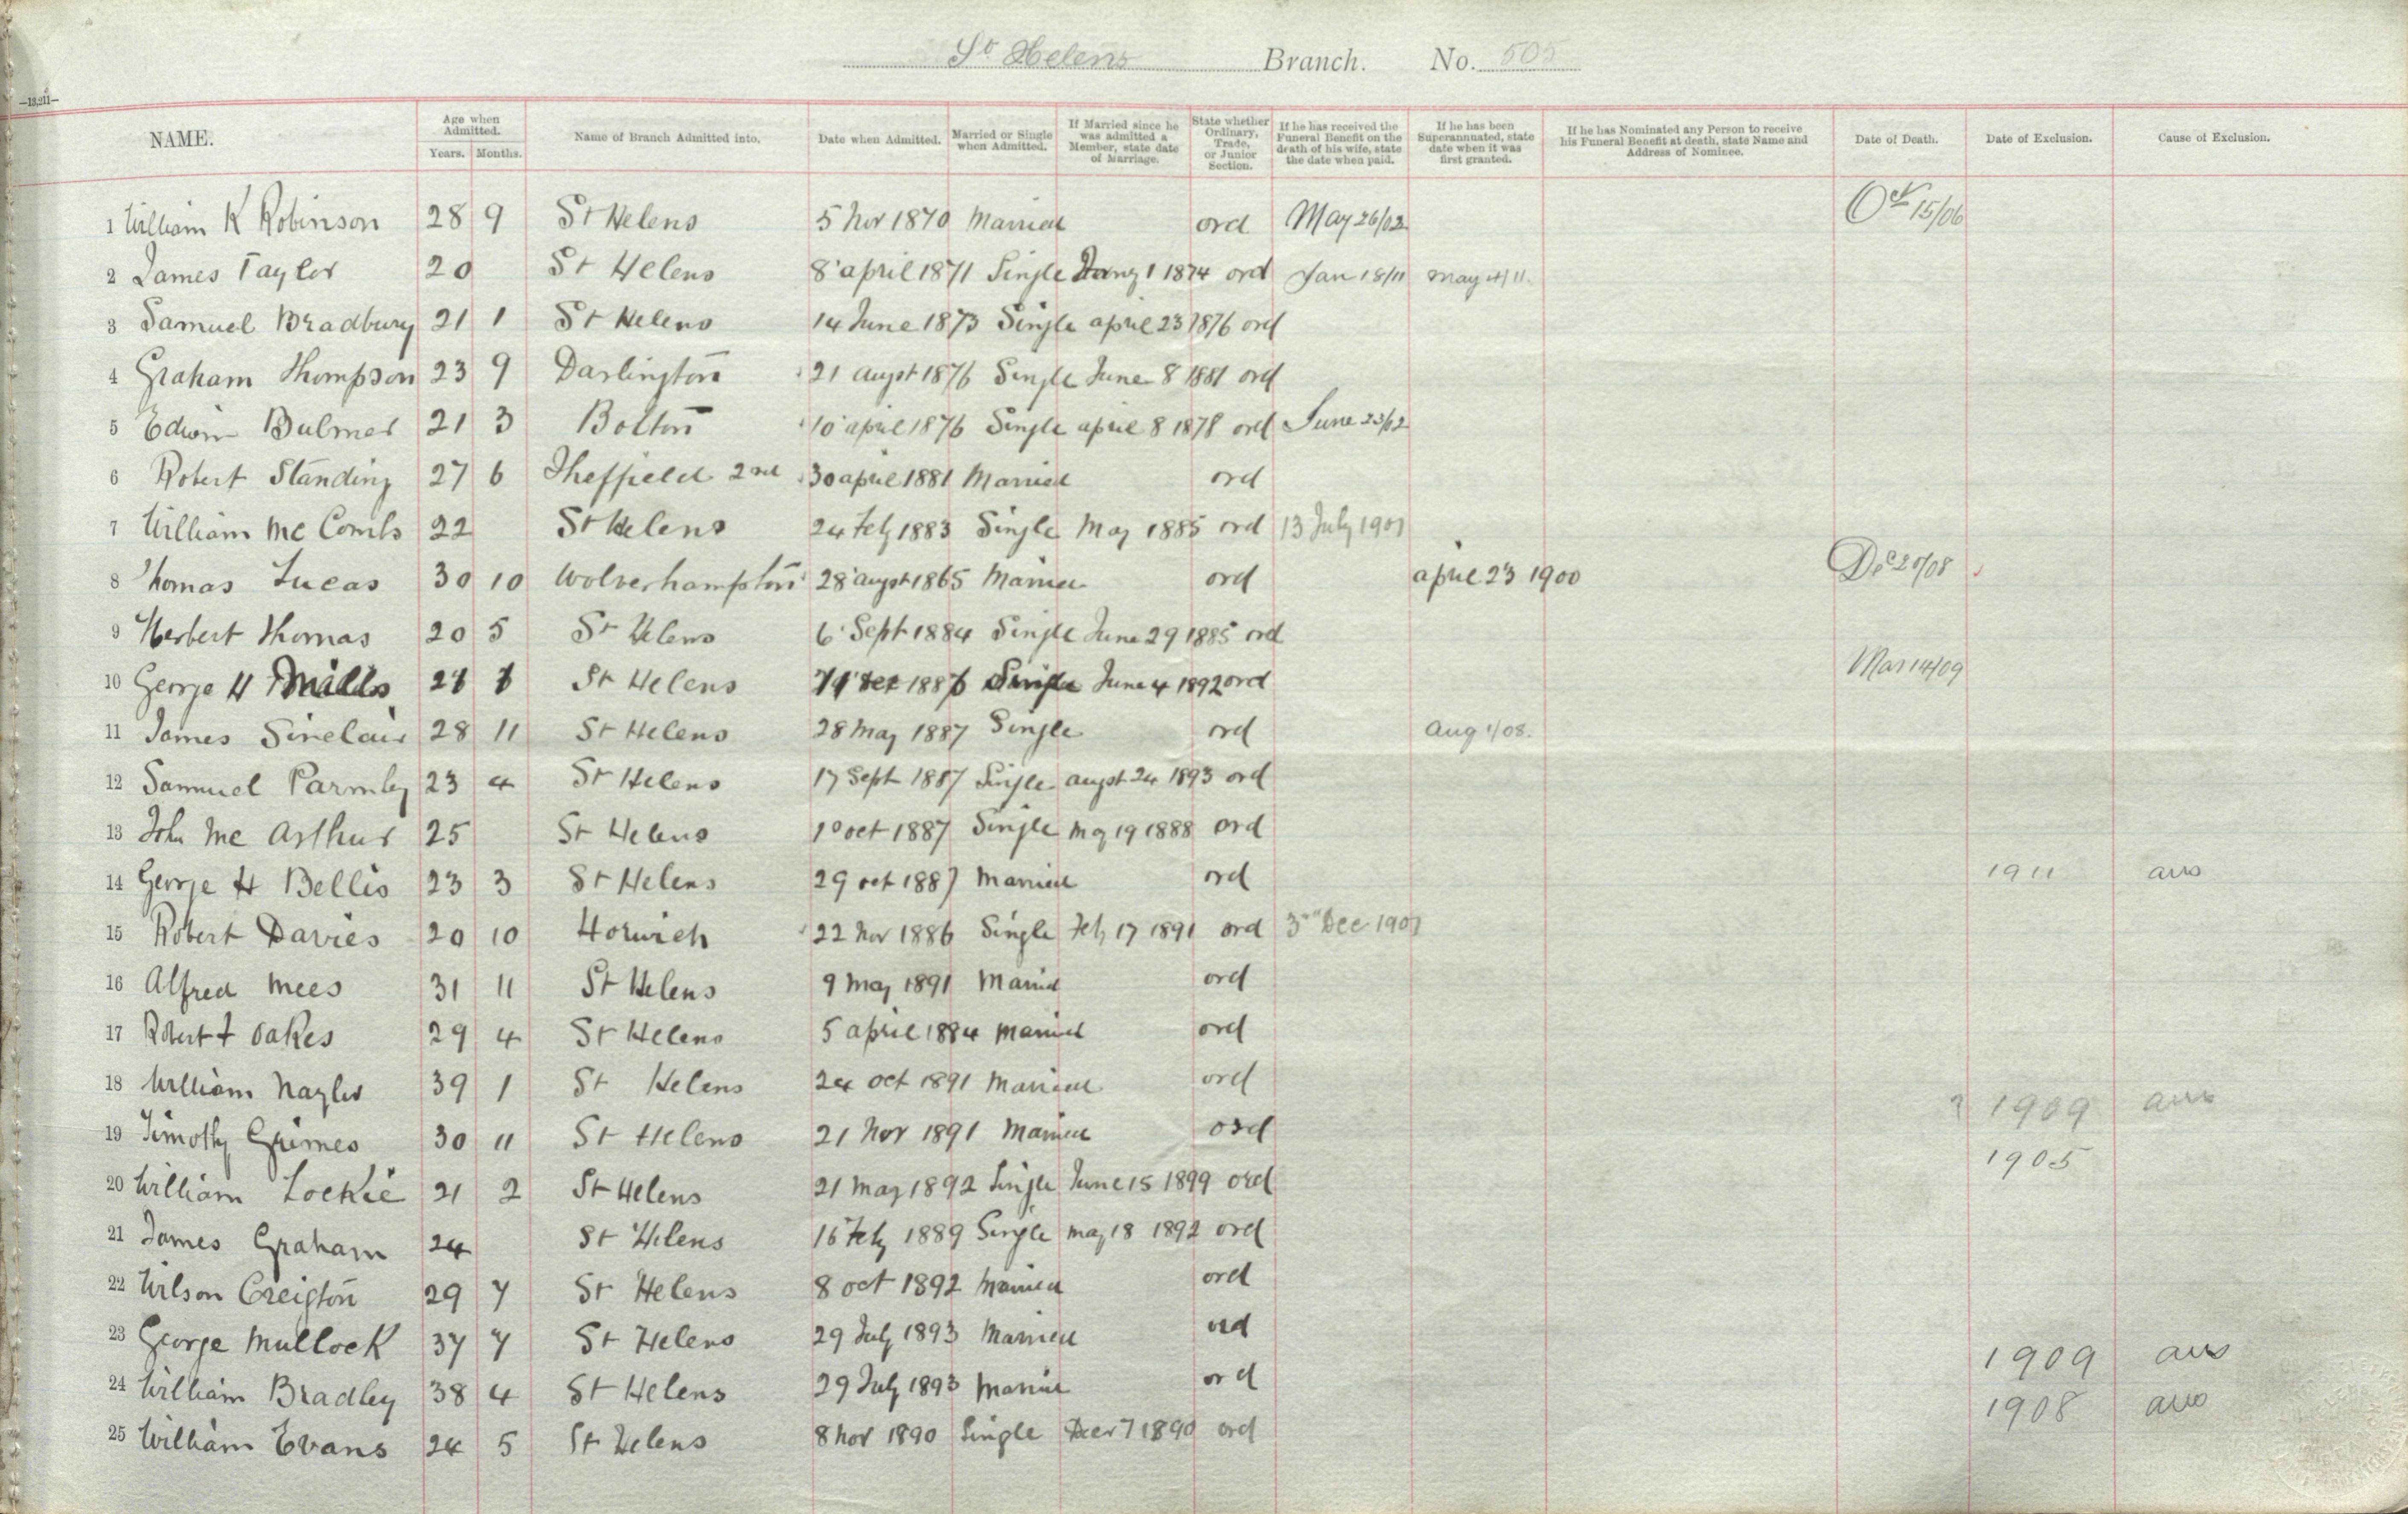 St Helens Branch. No. 505
—13,211—
NAME. Age when Admitted. Years. Months. Name of Branch Admitted into. Date when Admitted. Married or Single when Admitted. If Married since he was admitted a Member, state date of Marriage. State whether Ordinary, Trade, or Junior Section. If he has received the Funeral Benefit on the death of his wife, state the date when paid. If he has been Superannuated, state date when it was first granted. If he has Nominated any Person to receive his Funeral Benefit at death, state Name and Address of Nominee. Date of Death. Date of Exclusion. Cause of Exclusion.
1 William K Robinson 28 9 St Helens 5 Nov 1870 Married ord May 26/02 Oct 15/06
2 James Taylor 20 St Helens 8 april 1871 Single 1 1874 ord Jan 18/11 may 4/11
3 Samuel Bradbury 21 1 St Helens 14 June 1873 Single april 23 1876 ord
4 Graham Thompson 23 9 Darlington 21 augst 1876 Single June 8 1881 ord
5 Edwin Bulmer 21 3 Bolton 10 april 1876 Single april 8 1878 ord June 23/02
6 Robert Standing 27 6 Sheffield 2nd 30 april 1881 Married ord
7 William Mc Combs 22 St Helens 24 Feby 1883 Single May 1885 ord 13 July 1907
8 Thomas Lucas 30 10 Wolverhampton 28 augst 1865 Married ord april 23 1900 Dec 20/08
9 Herbert Thomas 20 5 St Helens 6 Sept 1884 Single June 29 1885 ord
10 George H Mills St Helens 1886 Single June 4 1892 ord Mar 14/09
11 James Sinclair 28 11 St Helens 28 May 1887 Single ord Aug 1/08.
12 Samuel Parmley 23 4 St Helens 17 Sept 1887 Single augst 24 1893 ord
13 John Mc Arthur 25 St Helens 1 oct 1887 Single May 19 1888 ord
14 George H Bellis 23 3 St Helens 29 oct 1887 Married ord 1911 ars
15 Robert Davies 20 10 Horwich 22 Nov 1886 Single Feby 17 1891 ord 3rd Dec 1907
16 Alfred Mees 31 11 St Helens 9 May 1891 Married ord
17 Robert Oakes 29 4 St Helens 5 april 1884 Married ord
18 William Naylor 39 1 St Helens 24 oct 1891 Married ord ? 1909 ars
19 Timothy Grimes 30 11 St Helens 21 Nov 1891 Married ord 1905
20 William Lockie 21 2 St Helens 21 May 1892 Single June 15 1899 ord
21 James Graham 24 St Helens 16 Feby 1889 Single May 18 1892 ord
22 Wilson Creigton 29 7 St Helens 8 oct 1892 Married ord
23 George Mullock 37 7 St Helens 29 July 1893 Married ord 1909 ars
24 William Bradley 38 4 St Helens 29 July 1893 Married ord 1908 ars
25 William Evans 24 5 St Helens 8 Nov 1890 Single Decr 7 1890 ord